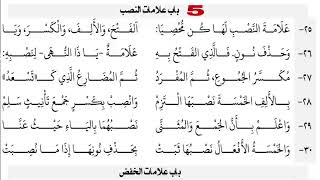 5 باب علامات النصب
٢٥- عَلَامَةُ النَّصْبِ لَهَا كُنْ مُحْصِيَا: اَلْفَتْحَ، وَالْأَلِفَ، وَالْكَسْرَ، وَيَا
٢٦- وَحَذْفَ نُونٍ. فَالَّذِي الْفَتْحُ بِهِ عَلَامَةٌ -يَا ذَا النُّهَى- لِنَصْبِهِ:
٢٧- مُكَسَّرُ الْجُمُوعِ، ثُمَّ الْمُفْرَدُ ثُمَّ الْمُضَارِعُ الَّذِي كَـ«تَسْعَدُ»
٢٨- بِالْأَلِفِ الْخَمْسَةَ نَصْبَهَا الْتَزِمْ وَانْصِبْ بِكَسْرٍ جَمْعَ تَأْنِيثٍ سَلِمْ
٢٩- وَاعْلَمْ بِأَنَّ الْجَمْعَ وَالْمُثَنَّى نَصْبُهُمَا بِالْيَاءِ حَيْثُ عَنَّا
٣٠- وَالْخَمْسَةُ الْأَفْعَالُ نَصْبُهَا ثَبَتْ بِحَذْفِ نُونِهَا إِذَا مَا نُصِبَتْ
باب علامات الخفض